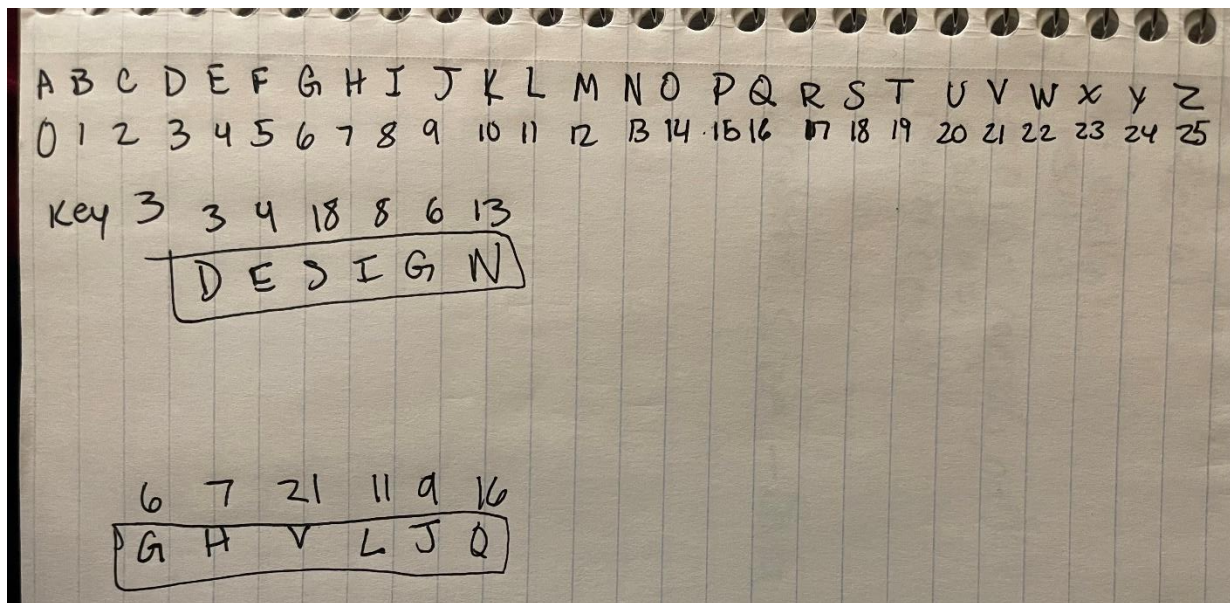 A B C D E F G H I J K L M N O P Q R S T U V W X Y Z
0 1 2 3 4 5 6 7 8 9 10 11 12 13 14 15 16 17 18 19 20 21 22 23 24 25
Key 3 3 4 18 8 6 13
D E S I G N
6 7 21 11 9 16
G H V L J Q